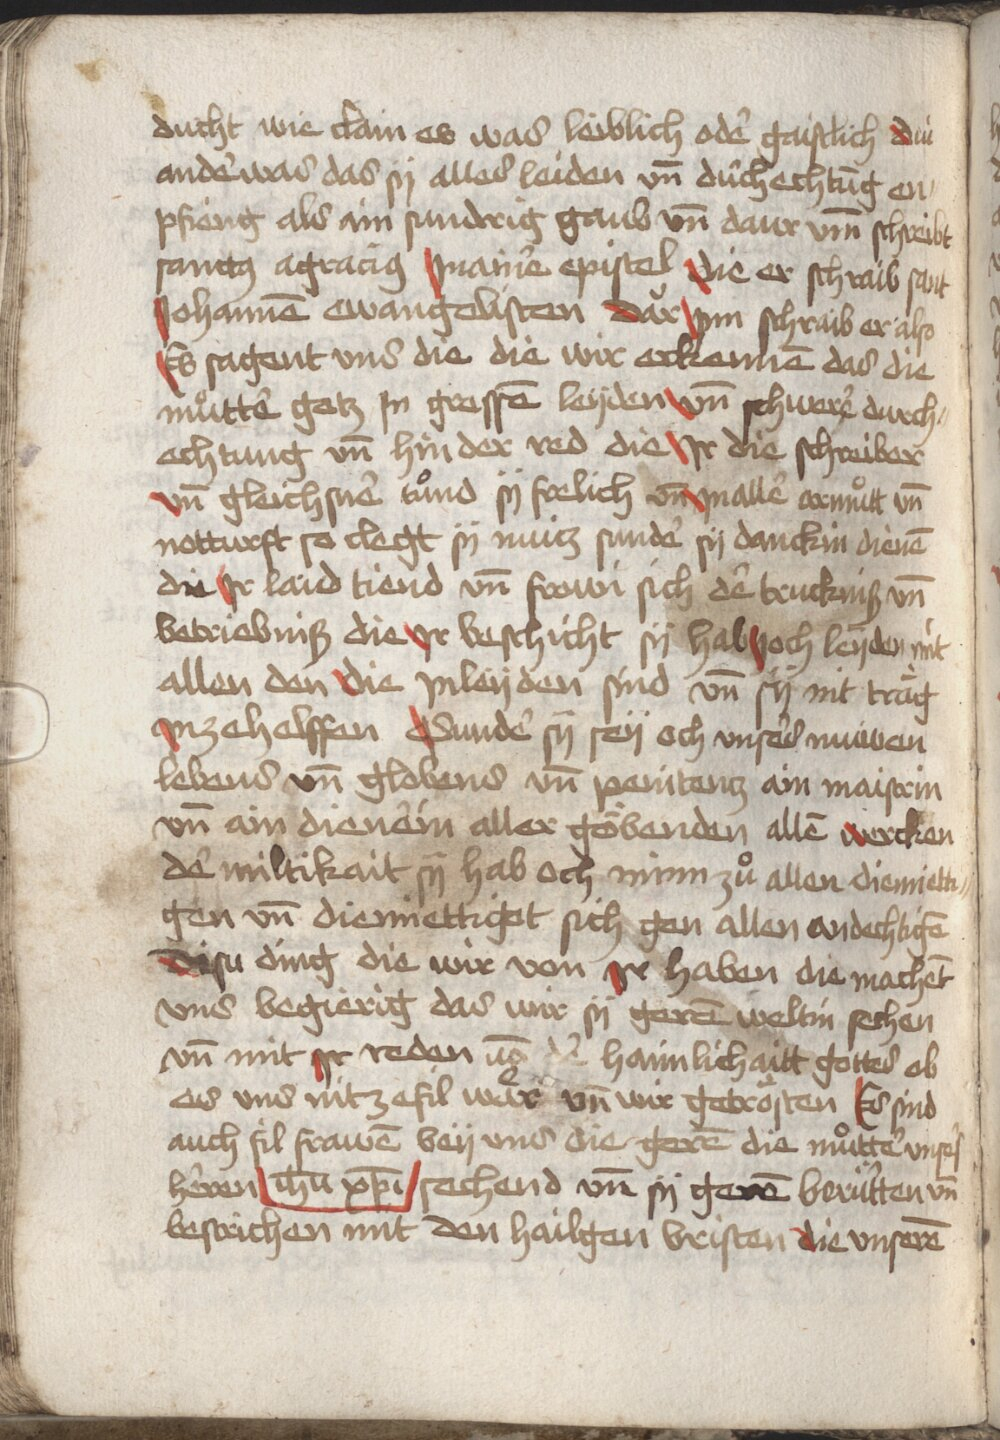 ducht wie clain es was leiblich oder̄ gaistlich diu
ander̄ was das sÿ alles leiden vn̄ durchechtūg en
pfieng als ain sundrig gaub vn̄ daur vm̄ schreibt
sanctꝰ agnaciꝰ in ainer̄ epistel die er schraib sant
Johannē ewangelisten dar Jnn schraib er also
Es sagent uns die die wir erkennē das die
mů̊tter̄ gotz Jn grossē leÿden vn̄ schwerer̄ durch
echtung vn̄ hinder red die Jr die schreiber
vn̄ gleichsner̄ tůnd sÿ frelich vn̄ Jn aller̄ armůtt vn̄
notturft so clegt sÿ nützͥ sunder̄ sÿ danckin dienē
die Jr laid tiend vn̄ frowi sich der̄ truckniß vn̄
betriebniß die Jr beschicht sÿ hab och leÿden mit
allen den die Jn leÿden sind vn̄ sÿ nit träg
Jn ze helffen Sunder̄ sÿ seÿ och vnsers̄ nuiwen
lebens vn̄ globens vn̄ penitentz ain maistrin
vn̄ ain dienerin aller gö̈benden allē wercken
der̄ miltikait sÿ hab och minn zů allen diemietti
gen vn̄ diemiettiget sich gen allen andechtigē
Disu ding die wir von Jr haben die machēt
vns begierig das wir sÿ gerē weltin sechen
vn̄ mit Jr reden us̄ der̄ haimlichaitt gottes ob
es vns nit ze fil wär vn̄ wir getrösten Es sind
auch fil frawē beÿ vns die gerē die můtter̄ vnsers̄
herren ih̄u xp̄i sechend vn̄ sÿ gerē berürtten vn̄
bestrichen mit den hailgen bristen die vnserē